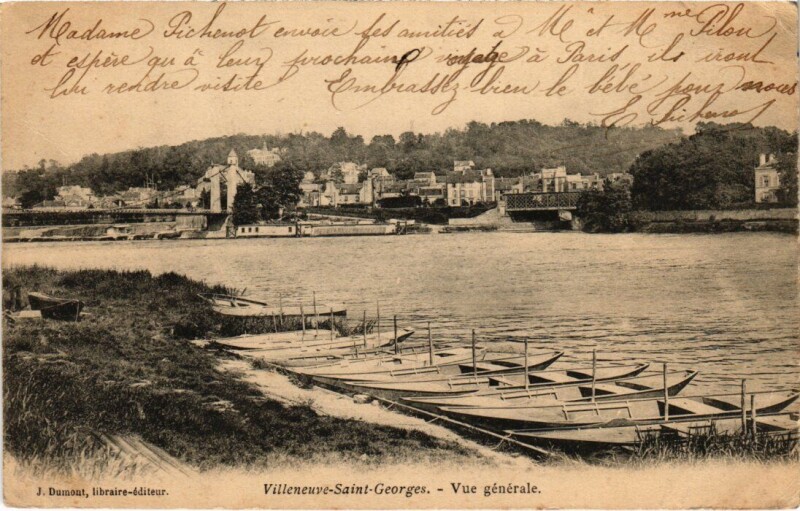 Madame Pichenot envoie ses amitiés à Mr et Mme Pilon
et espère qu'à leur prochain voyage à Paris, ils iront
lui rendre visite Embrassez bien le bébé pour nous
E. Pichenot
J. Dumont, libraire-éditeur.
Villeneuve-Saint-Georges. - Vue générale.